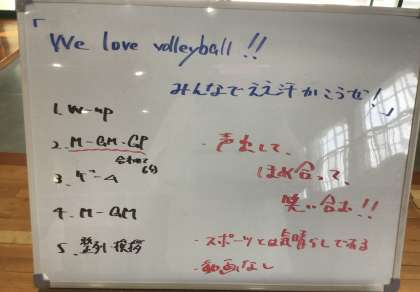 「We love volleyball!!
みんなでええ汗かこうぜ!」
1. W-up
2. M-GM-GP
合わせて6分
3. ゲーム
4. M-GM
5. 整列・挨拶
・声出して、
ほめ合って、
笑い合む!!
・スポーツとは気晴らしである
・動画なし